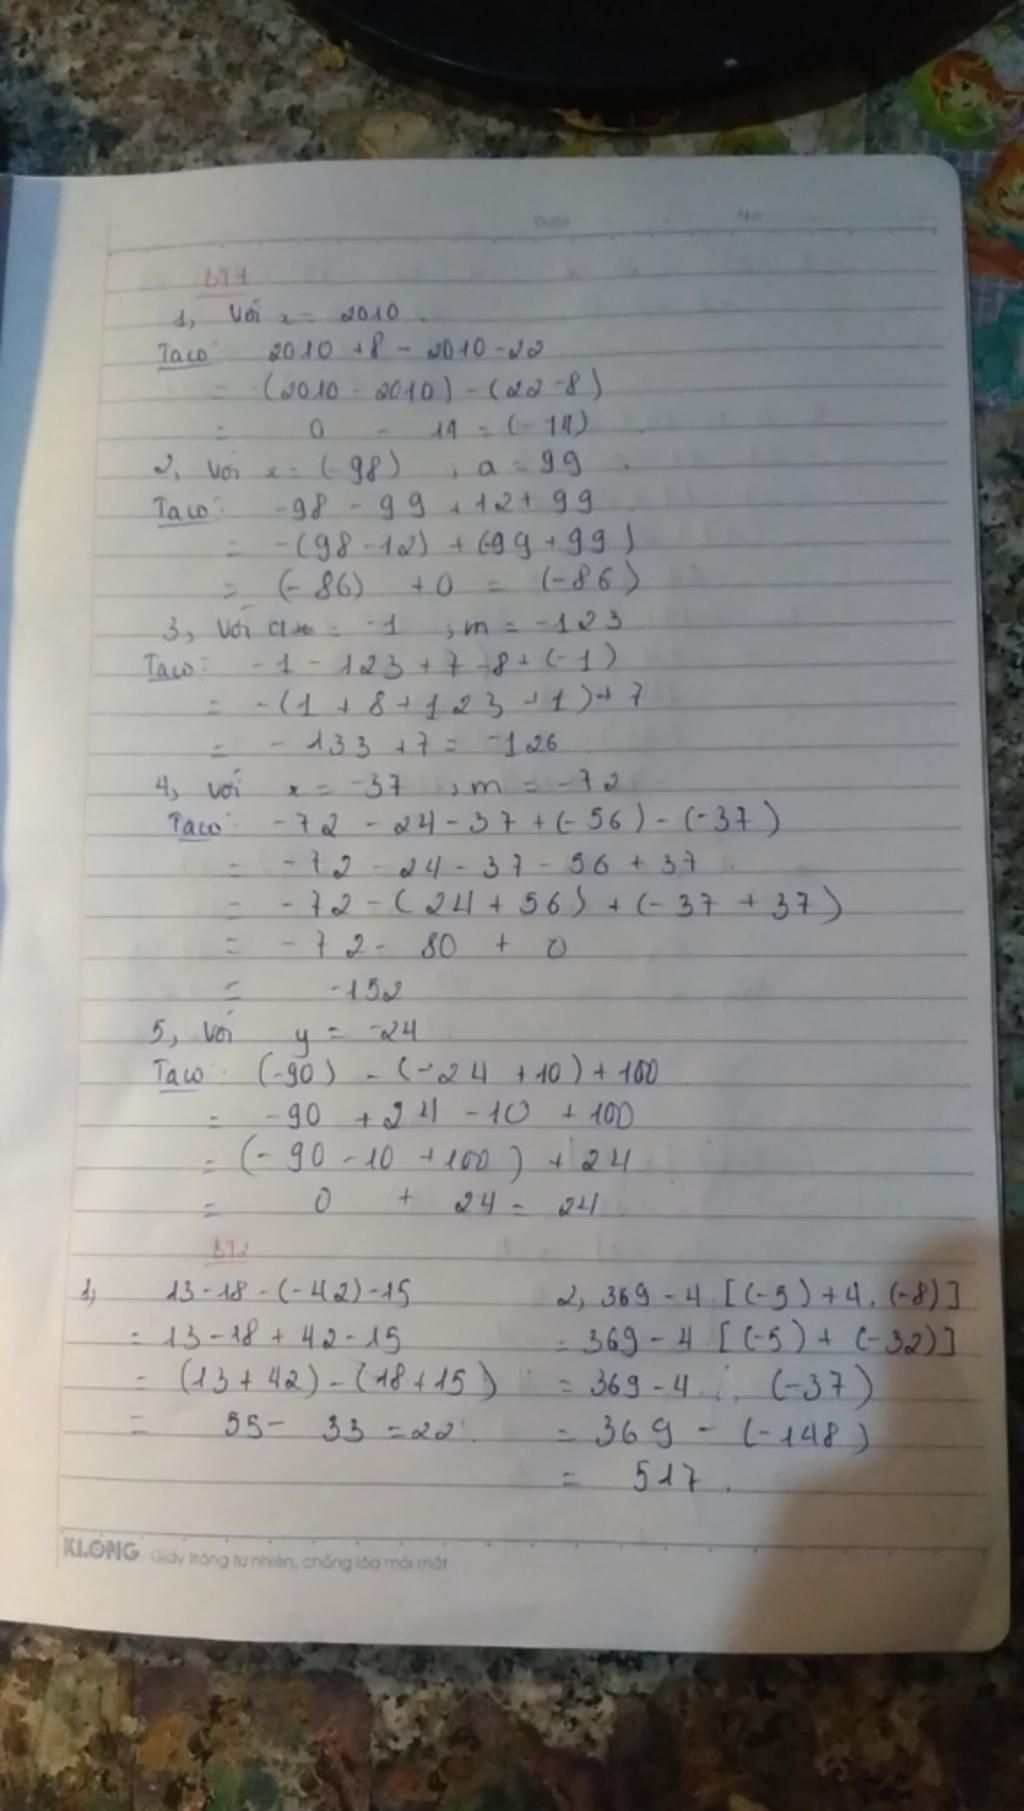 Date No
BT1
1, Với x = 2010.
Ta có: 2010 + 8 - 2010 - 22
= (2010 - 2010) - (22 - 8)
= 0 - 14 = (-14)
2, Với x = (-98) , a = 99.
Ta có: -98 - 99 + 12 + 99
= -(98 - 12) + (-99 + 99)
= (-86) + 0 = (-86)
3, Với = -1 , m = -123
Ta có: -1 - 123 + 7 - 8 + (-1)
= -(1 + 8 + 123 + 1) + 7
= -133 + 7 = -126
4, Với x = -37 , m = -72
Ta có: -72 - 24 - 37 + (-56) - (-37)
= -72 - 24 - 37 - 56 + 37
= -72 - (24 + 56) + (-37 + 37)
= -72 - 80 + 0
= -152
5, Với y = -24
Ta có: (-90) - (-24 + 10) + 100
= -90 + 24 - 10 + 100
= (-90 - 10 + 100) + 24
= 0 + 24 = 24
BT2
1, 13 - 18 - (-42) - 15
= 13 - 18 + 42 - 15
= (13 + 42) - (18 + 15)
= 55 - 33 = 22.
2, 369 - 4 . [(-5) + 4 . (-8)]
= 369 - 4 . [(-5) + (-32)]
= 369 - 4 . (-37)
= 369 - (-148)
= 517.
KLONG Giấy trắng tự nhiên, chống lóa mỏi mắt